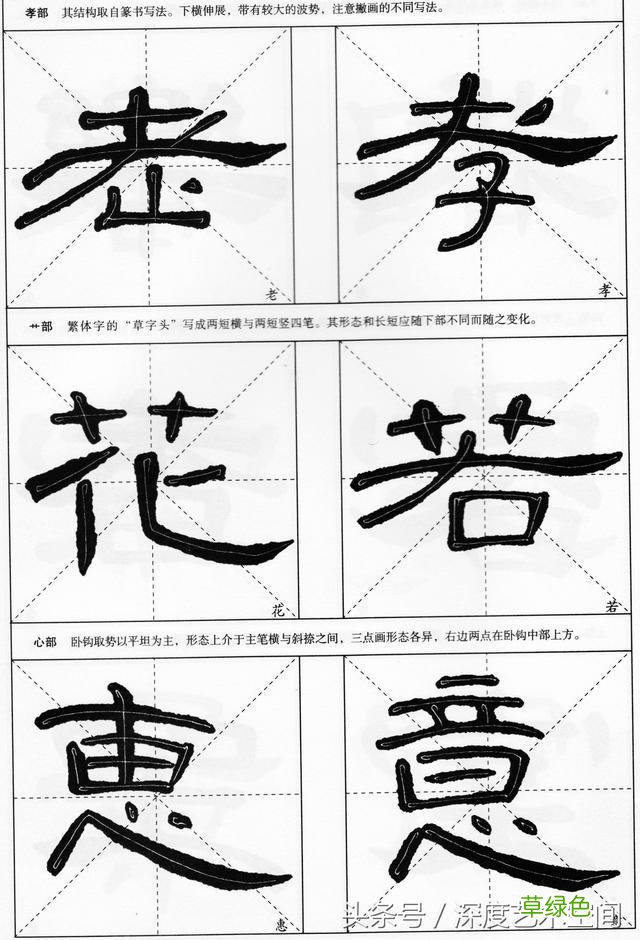 孝部 其结构取自篆书写法。下横伸展，带有较大的波势，注意撇画的不同写法。
老 孝
老 孝
艹部 繁体字的“草字头”写成两短横与两短竖四笔。其形态和长短应随下部不同而随之变化。
花 若
花 若
心部 卧钩取势以平坦为主，形态上介于主笔横与斜捺之间，三点画形态各异，右边两点在卧钩中部上方。
惠 意
惠
头条号／深度艺术空间
草绿色